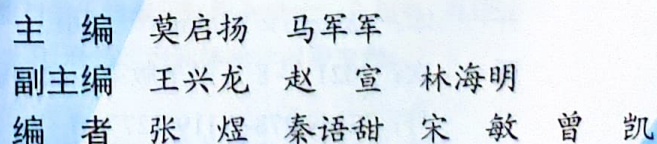 主　编　莫启扬　马军军
副主编　王兴龙　赵　宣　林海明
编　者　张　煜　秦语甜　宋　敏　曾　凯